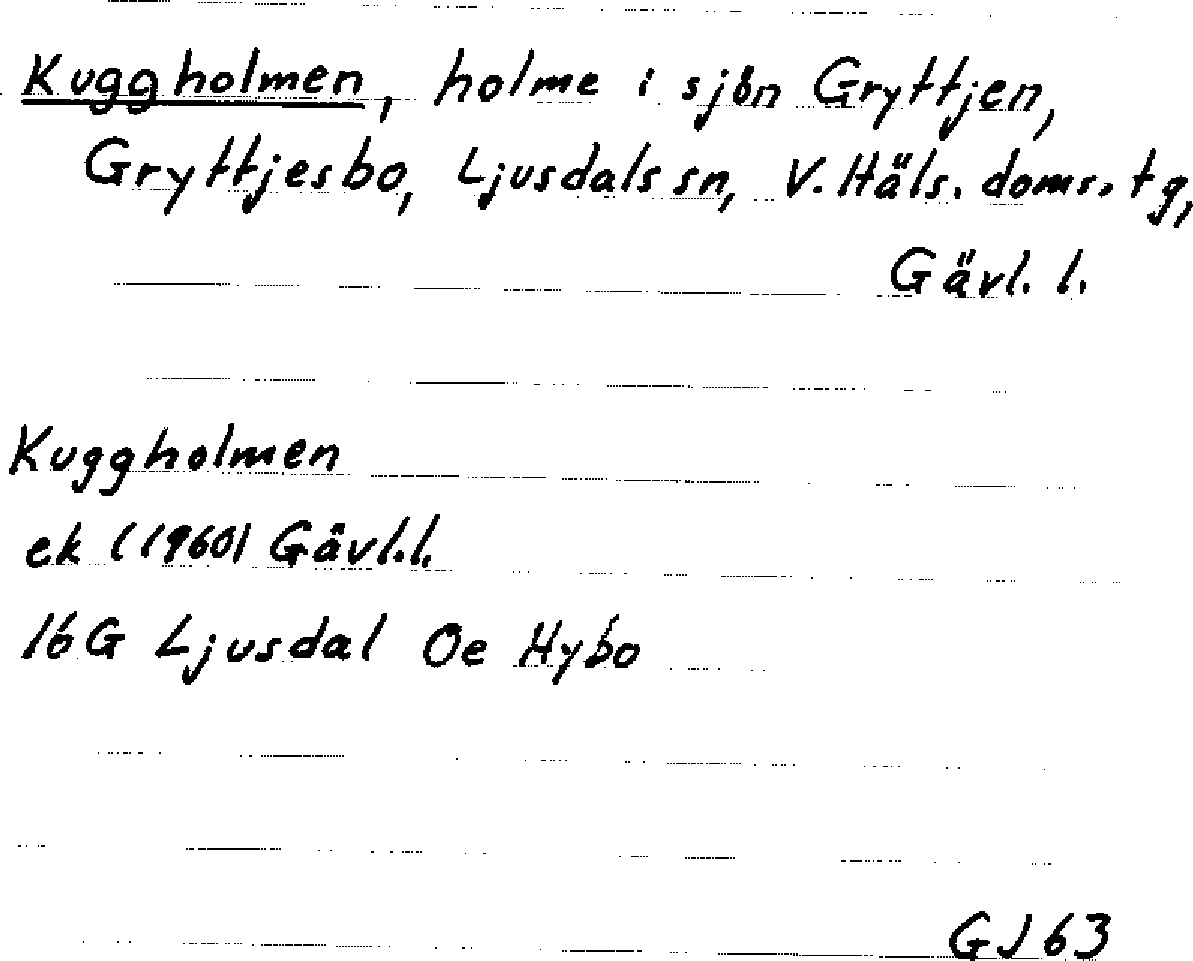 Kuggholmen, holme i sjön Gryttjen,
Gryttjesbo, Ljusdals sn, V. Häls. doms. tg,
Gävl. l.
Kuggholmen
ek (1960) Gävl.l.
16G Ljusdal Oe Hybo
GJ 63